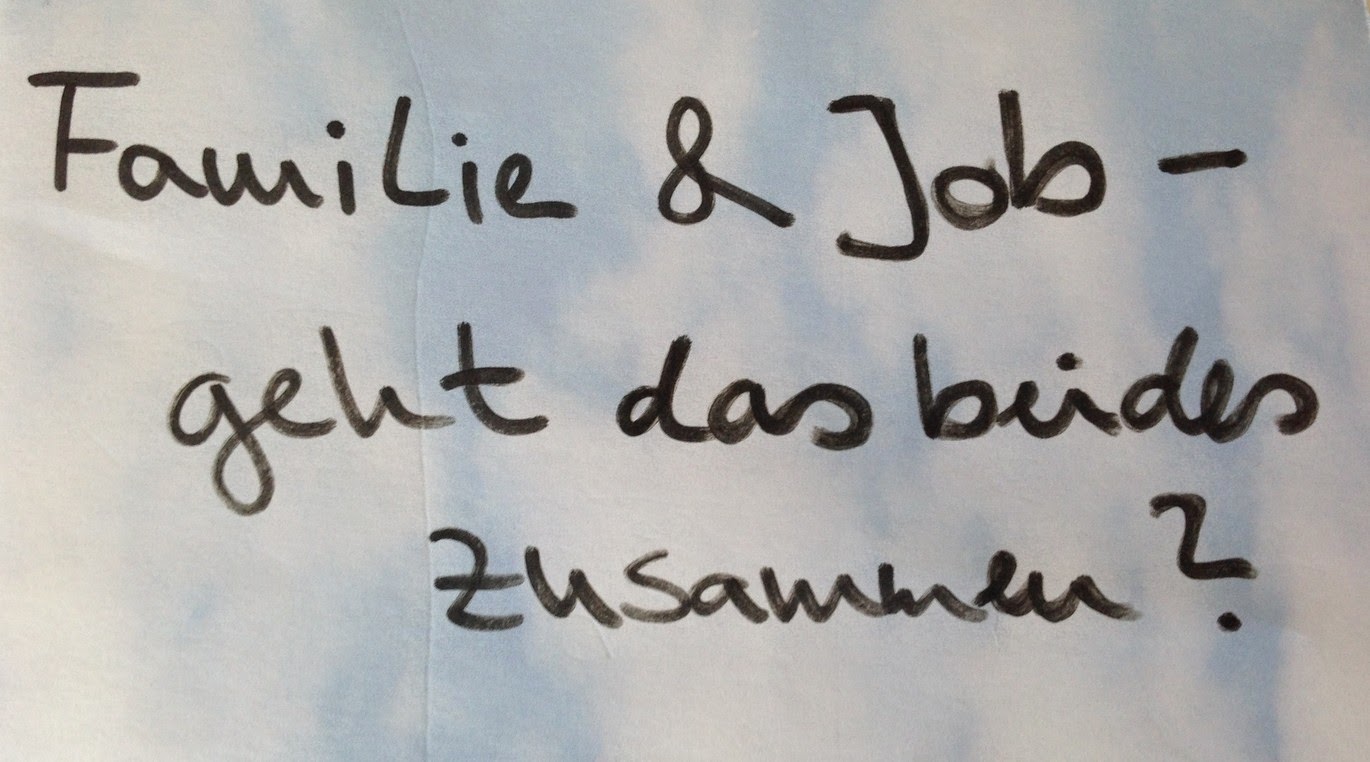 Familie & Job -
geht das beides
zusammen?